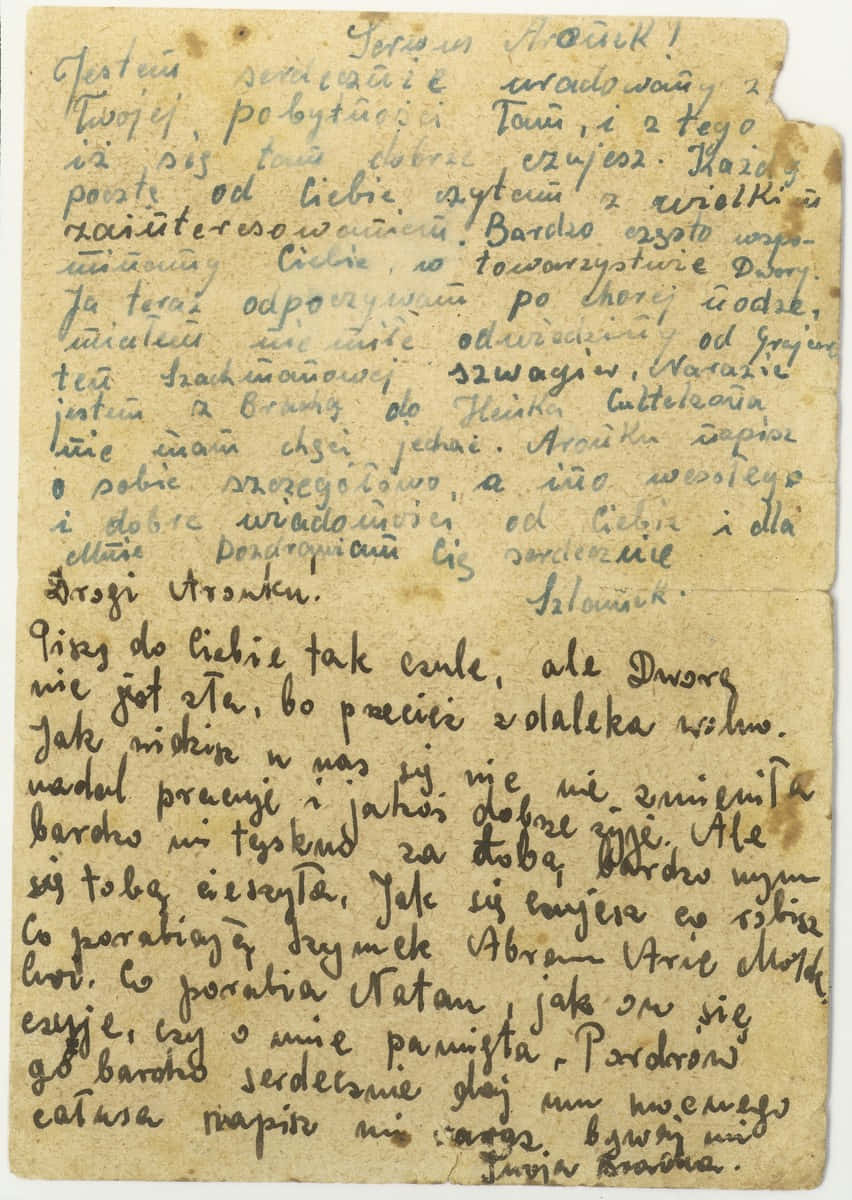 Serwus Aroniek!
Jestem serdecznie uradowany z
Twojej pobytności Tam, i z tego
iż się tam dobrze czujesz. Każdą
pocztę od Ciebie czytam z wielkim
zainteresowaniem. Bardzo często wspo-
minamy Ciebie, w towarzystwie Dwory.
Ja teraz odpoczywam po chorej nodze,
miałem nie miłe odwiedziny od
ten Szachmanowej szwagier. Narazie
jestem z Brachą do Heńka
nie mam chęci jechać. Aronku napisz
o sobie szczegółowo, a ino wesołego
i dobre wiadomości od Ciebie i dla
Mnie Pozdrawiam Cię serdecznie
Szlamek.
Drogi Aronku!
Piszę do Ciebie tak czule, ale Dworę
nie jest zła, bo przecież z daleka wolno.
Jak widzisz u nas się nic nie zmieniła
nadal pracuje i jakoś dobrze żyje. Ale
bardzo mi tęskno za tobą, bardzo bym
się tobą cieszyła. Jak się czujesz co robisz
Co porabiają Szymek Abram Arie
Co porabia Natan, jak on się
czuje, czy o mnie pamięta. Pozdrów
go bardzo serdecznie daj mu mocnego
całusa napisz mi zaraz bywaj mi
Twoja